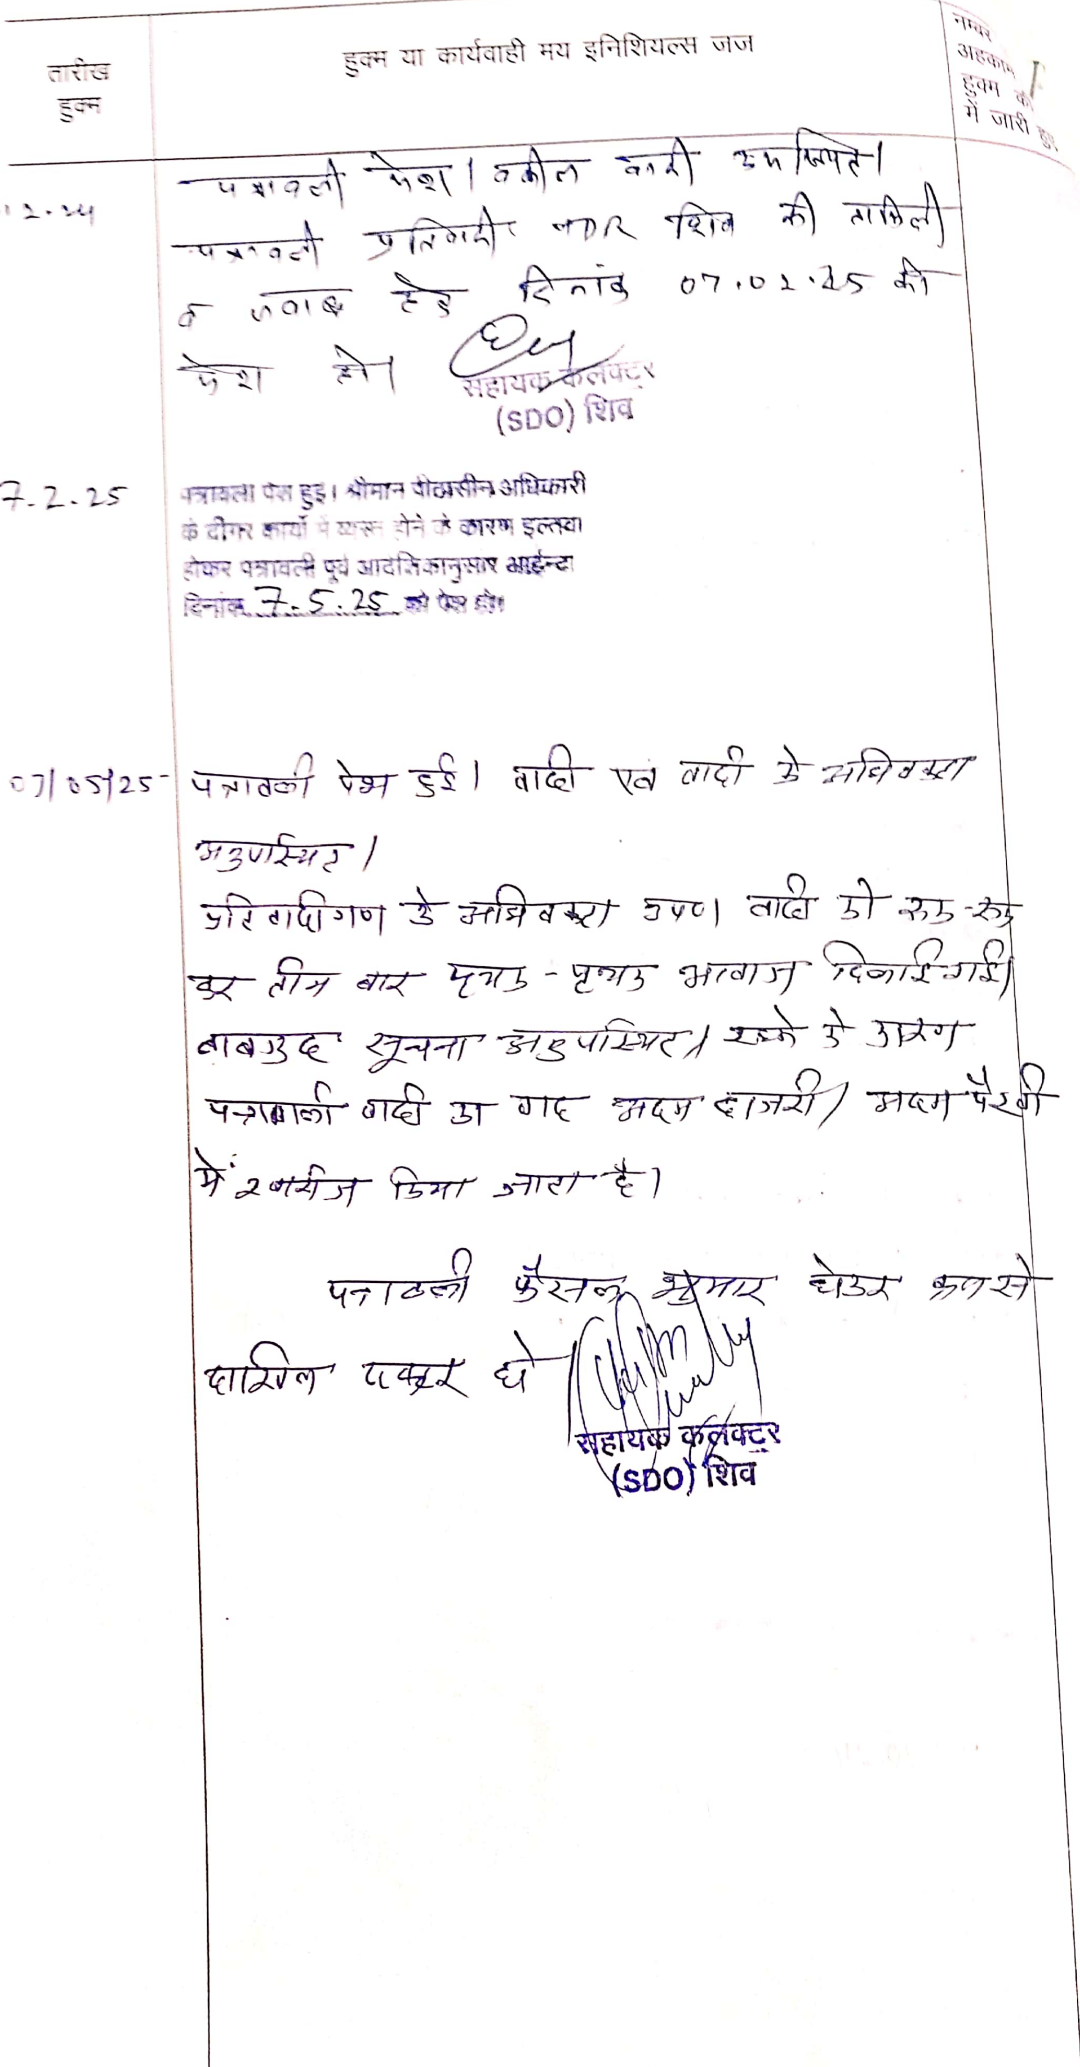 तारीख
हुक्म
हुक्म या कार्यवाही मय इनिशियल्स जज
नम्बर
अहकाम
हुक्म की
में जारी हुए
12.24
पत्रावली पेश। वकील वादी उपस्थित।
पत्रावली प्रतिवादी NDR शिव की तामिली
व जवाब हेतु दिनांक 07.02.25 को
पेश हो।
सहायक कलक्टर
(SDO) शिव
7.2.25
पत्रावली पेश हुई। श्रीमान पीठासीन अधिकारी
के दीगर कार्यो में व्यस्त होने के कारण इल्तवा
होकर पत्रावली पूर्व आदेशिकानुसार आईन्दा
दिनांक 7.5.25 को पेश हो।
07/05/25
पत्रावली पेश हुई। वादी एवं वादी के अधिवक्ता
अनुपस्थित।
प्रतिवादीगण के अधिवक्ता उप0। वादी को रूक-रूक
कर तीन बार पृथक-पृथक आवाज दिलाई गई।
बावजुद सूचना अनुपस्थित। रहने के कारण
पत्रावली वादी का वाद अदम हाजरी/अदम पैरवी
में खारीज किया जाता है।
पत्रावली फैसल शुमार होकर
दाखिल दफ्तर हो
सहायक कलक्टर
(SDO) शिव